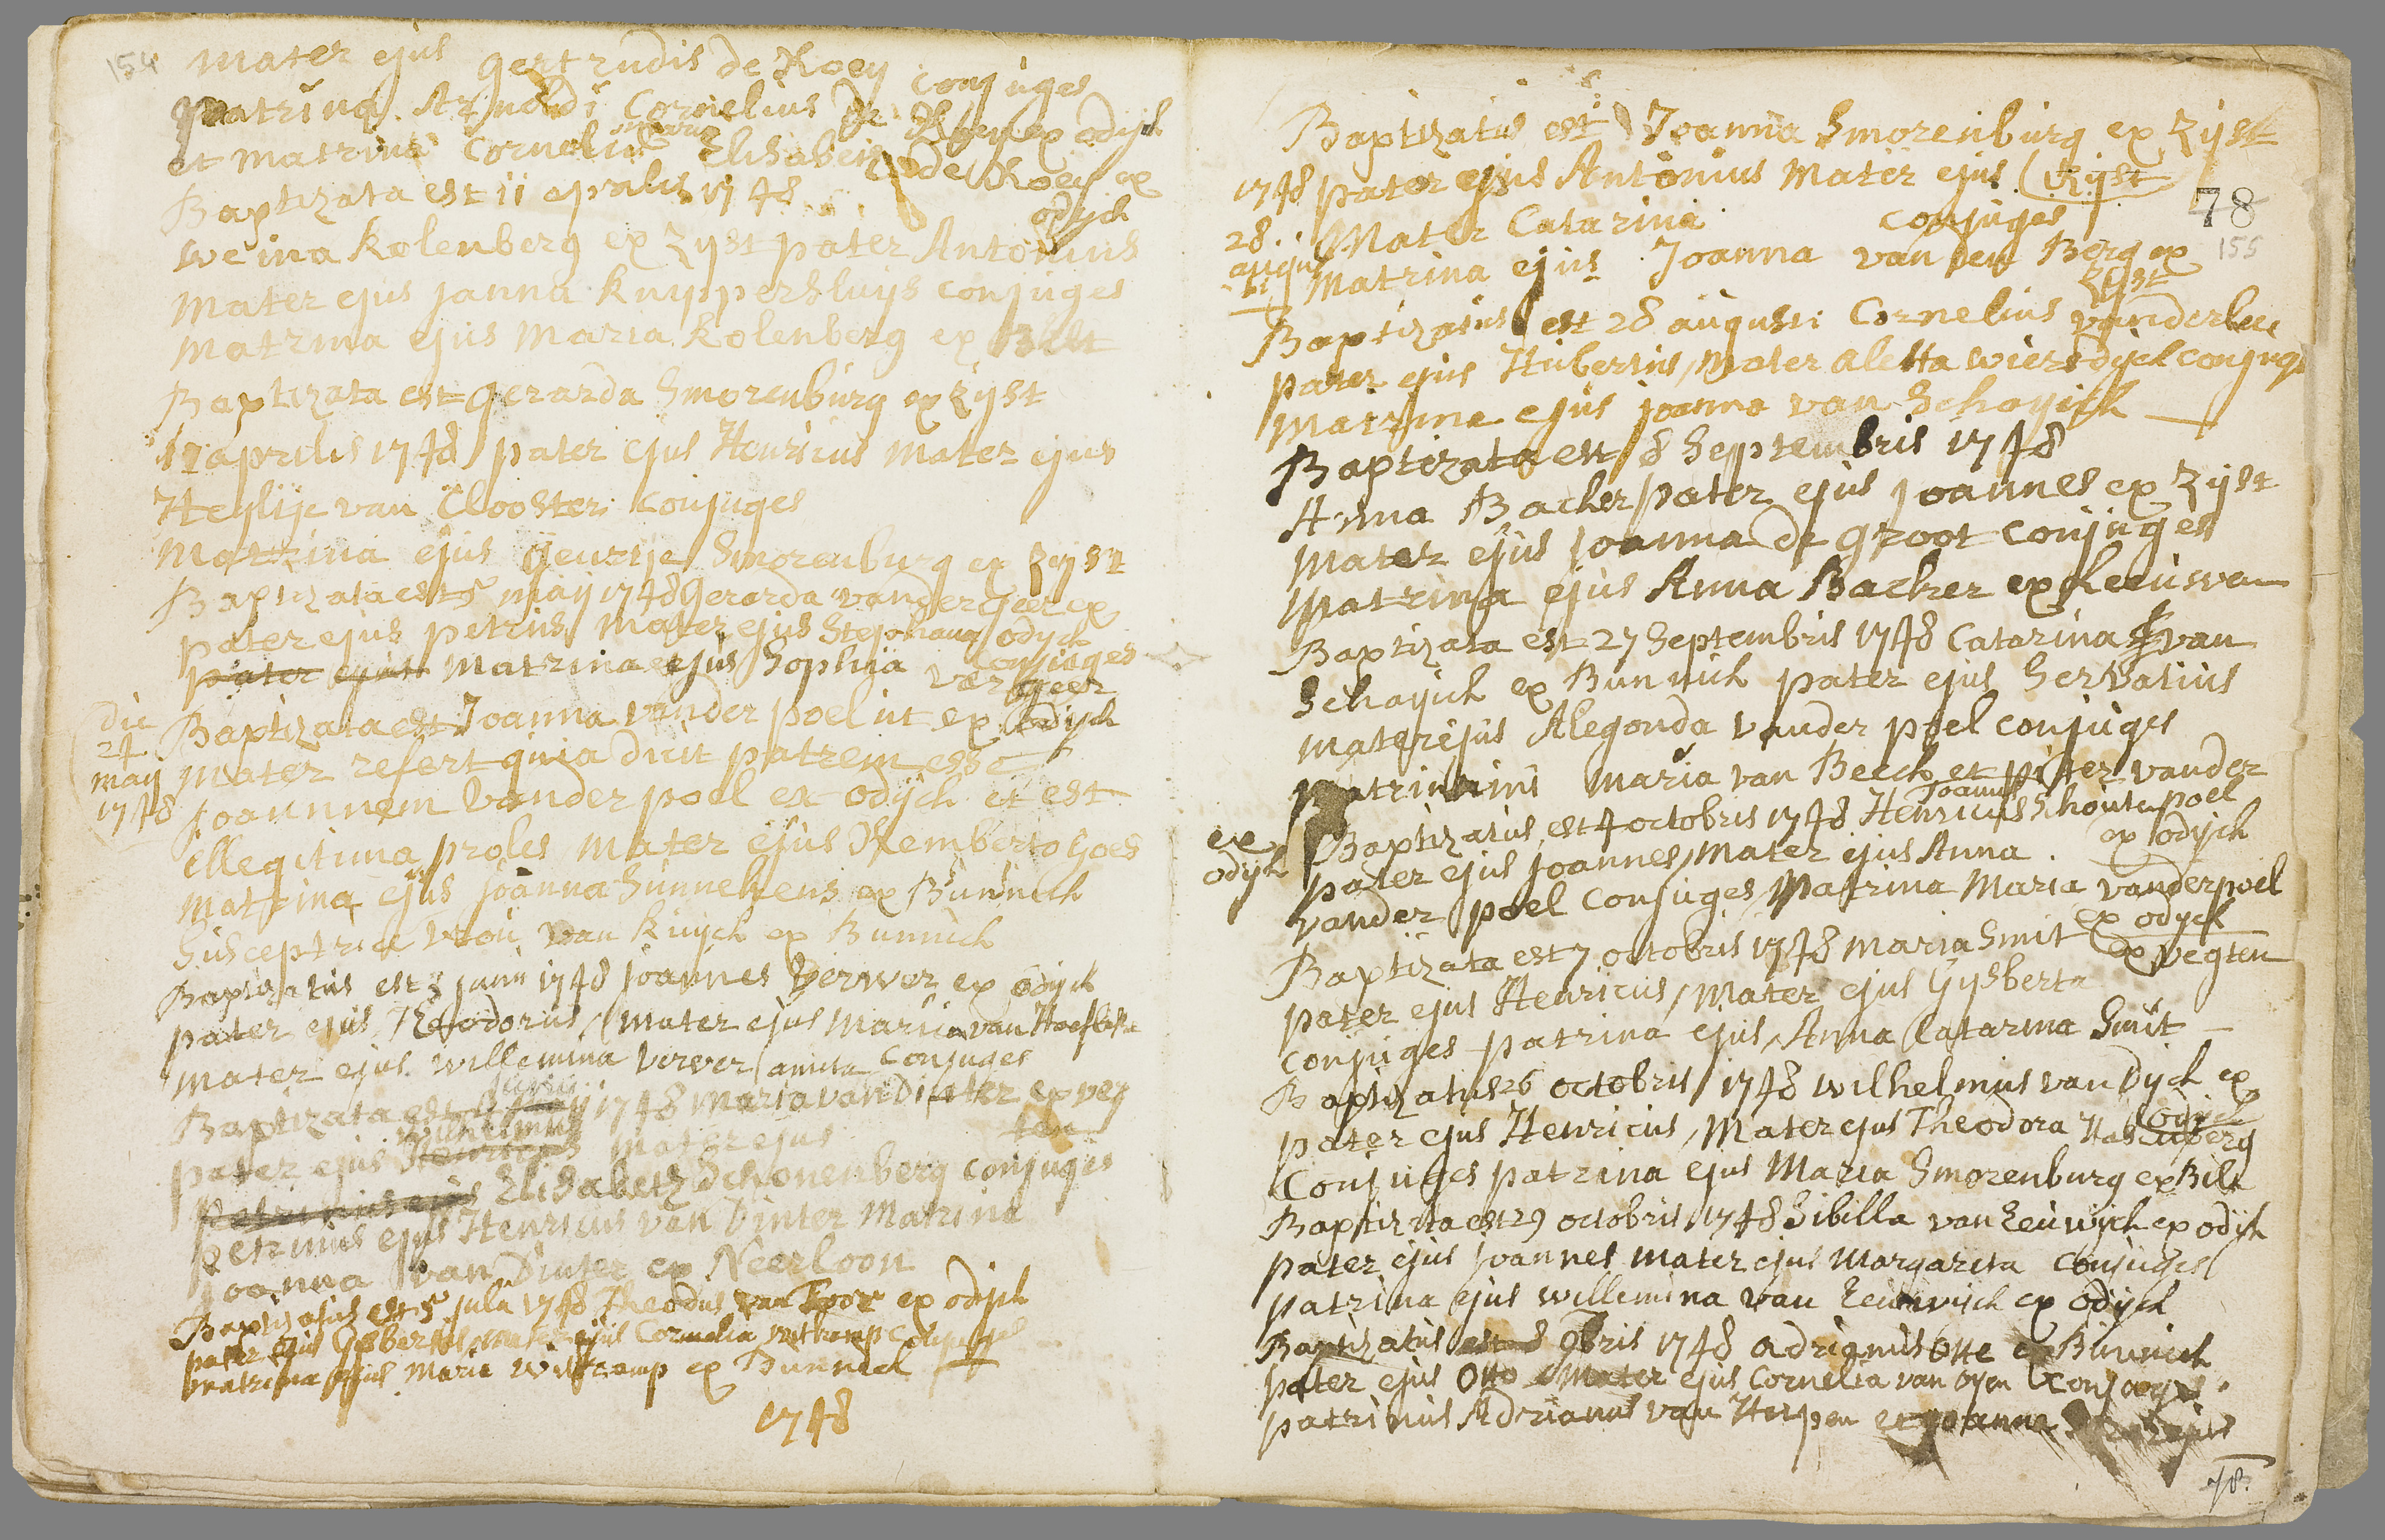 154
Mater ejus Gertrudis de Koey conjuges
patrina Arnoldi Cornelius de Koey ex odijck
et matrina Cornelia Maria Elisabeth de Koey ex odijck
Baptizata est 11 aprilis 1748
weina Kolenberg ex Zyst pater Antonius
Mater ejus janna Knyppersluijs conjuges
Matrina ejus Maria Kolenberg ex Bilt
Baptizata est Gerarda Smorenburg ex Zyst
17 aprilis 1748 pater ejus Henricus mater ejus
Heyltje van Clooster conjuges
Matrina ejus Geurtje Smorenburg ex Zeyst
Baptizata est 5 maij 1748 Gerarda vander Geer ex odyck
pater ejus petrus Mater ejus Stephana conjuges
pater ejus Matrina ejus Sophia ver geer
die 24 maij 1748
Baptizata est Joanna vander poel ut ex odijck
mater refert quia dicit patrem esse
Joannnem vander poel ex odijck et est
ellegitima proles Mater ejus Remberta Goes
matrina ejus joanna Sunnekens ex Bunnick
Susceptrice vrou van Kuijck ex Bunnick
Baptizatus est 3 junii 1748 joannes Verwer ex odijck
pater ejus Theodorus / mater ejus Maria van
mater ejus willemina Verver amita conjuges
Baptizata est junii 1748 Maria van Dinter ex vegten
pater ejus Henricus wilhelmus mater ejus
petrinus ejus Elisabeth Schonenberg conjuges
petrinus ejus Henricus van Dinter Matrina
joanna van Dinter ex Neerloon
Baptizatus est 5 julii 1748 Theodus van ex odijck
pater ejus Gysbertus mater ejus Cornelia witkamp conjuges
matrina ejus Maria witkamp ex Bunnick
1748
78
155
Baptizatus est Joanna Smorenburg ex Zyst
1748 pater ejus Antonius Mater ejus Zyst
28 augus Mater Catarina conjuges
Matrina ejus Joanna van den Berg ex Zyst
Baptizatus est 28 augusti Cornelius vanderlee
pater ejus Hubertus / Mater aletta wiersdijck conjuge
Matrina ejus joanna van Schayick
Baptizata est 8 Septembris 1748
Anna Backer pater ejus joannes ex Zijst
Mater ejus joanna de groot conjuges
Matrina ejus Anna Backer ex
Baptizata est 27 Septembris 1748 Catarina van
Schayick ex Bunnick pater ejus Servatius
mater ejus Alegonda vander poel conjuges
maria van Beeck et piter vander poel
ex odijck
Baptizatus est 4 octobris 1748 Henricus Joannes Schouten ex odijck
pater ejus joannes / Mater ejus Anna
vander poel conjuges / Matrina Maria vanderpoel ex odyck
Baptizata est 7 octobris 1748 Maria Smit ex vegten
pater ejus Henricus / Mater ejus Gysberta
conjuges patrina ejus Anna Catarina Smit
Baptizatus 26 octobris 1748 wilhelmus van Dijck ex odijck
pater ejus Henricus / Mater ejus Theodora
Conjuges patrina ejus Maria Smorenburg ex Bilt
Baptizata est 29 octobris 1748 Sibilla van Zeuwijck ex odijck
pater ejus joannes mater ejus Margareta conjuges
patrina ejus willemina van Zeuwijck ex odijck
Baptizatus est 8 9bris 1748 adrianus otte ex Bunnick
pater ejus Otto Mater ejus Cornelia van oyen conjuges
patrinus Adrianus van Herpen et joanna
78.